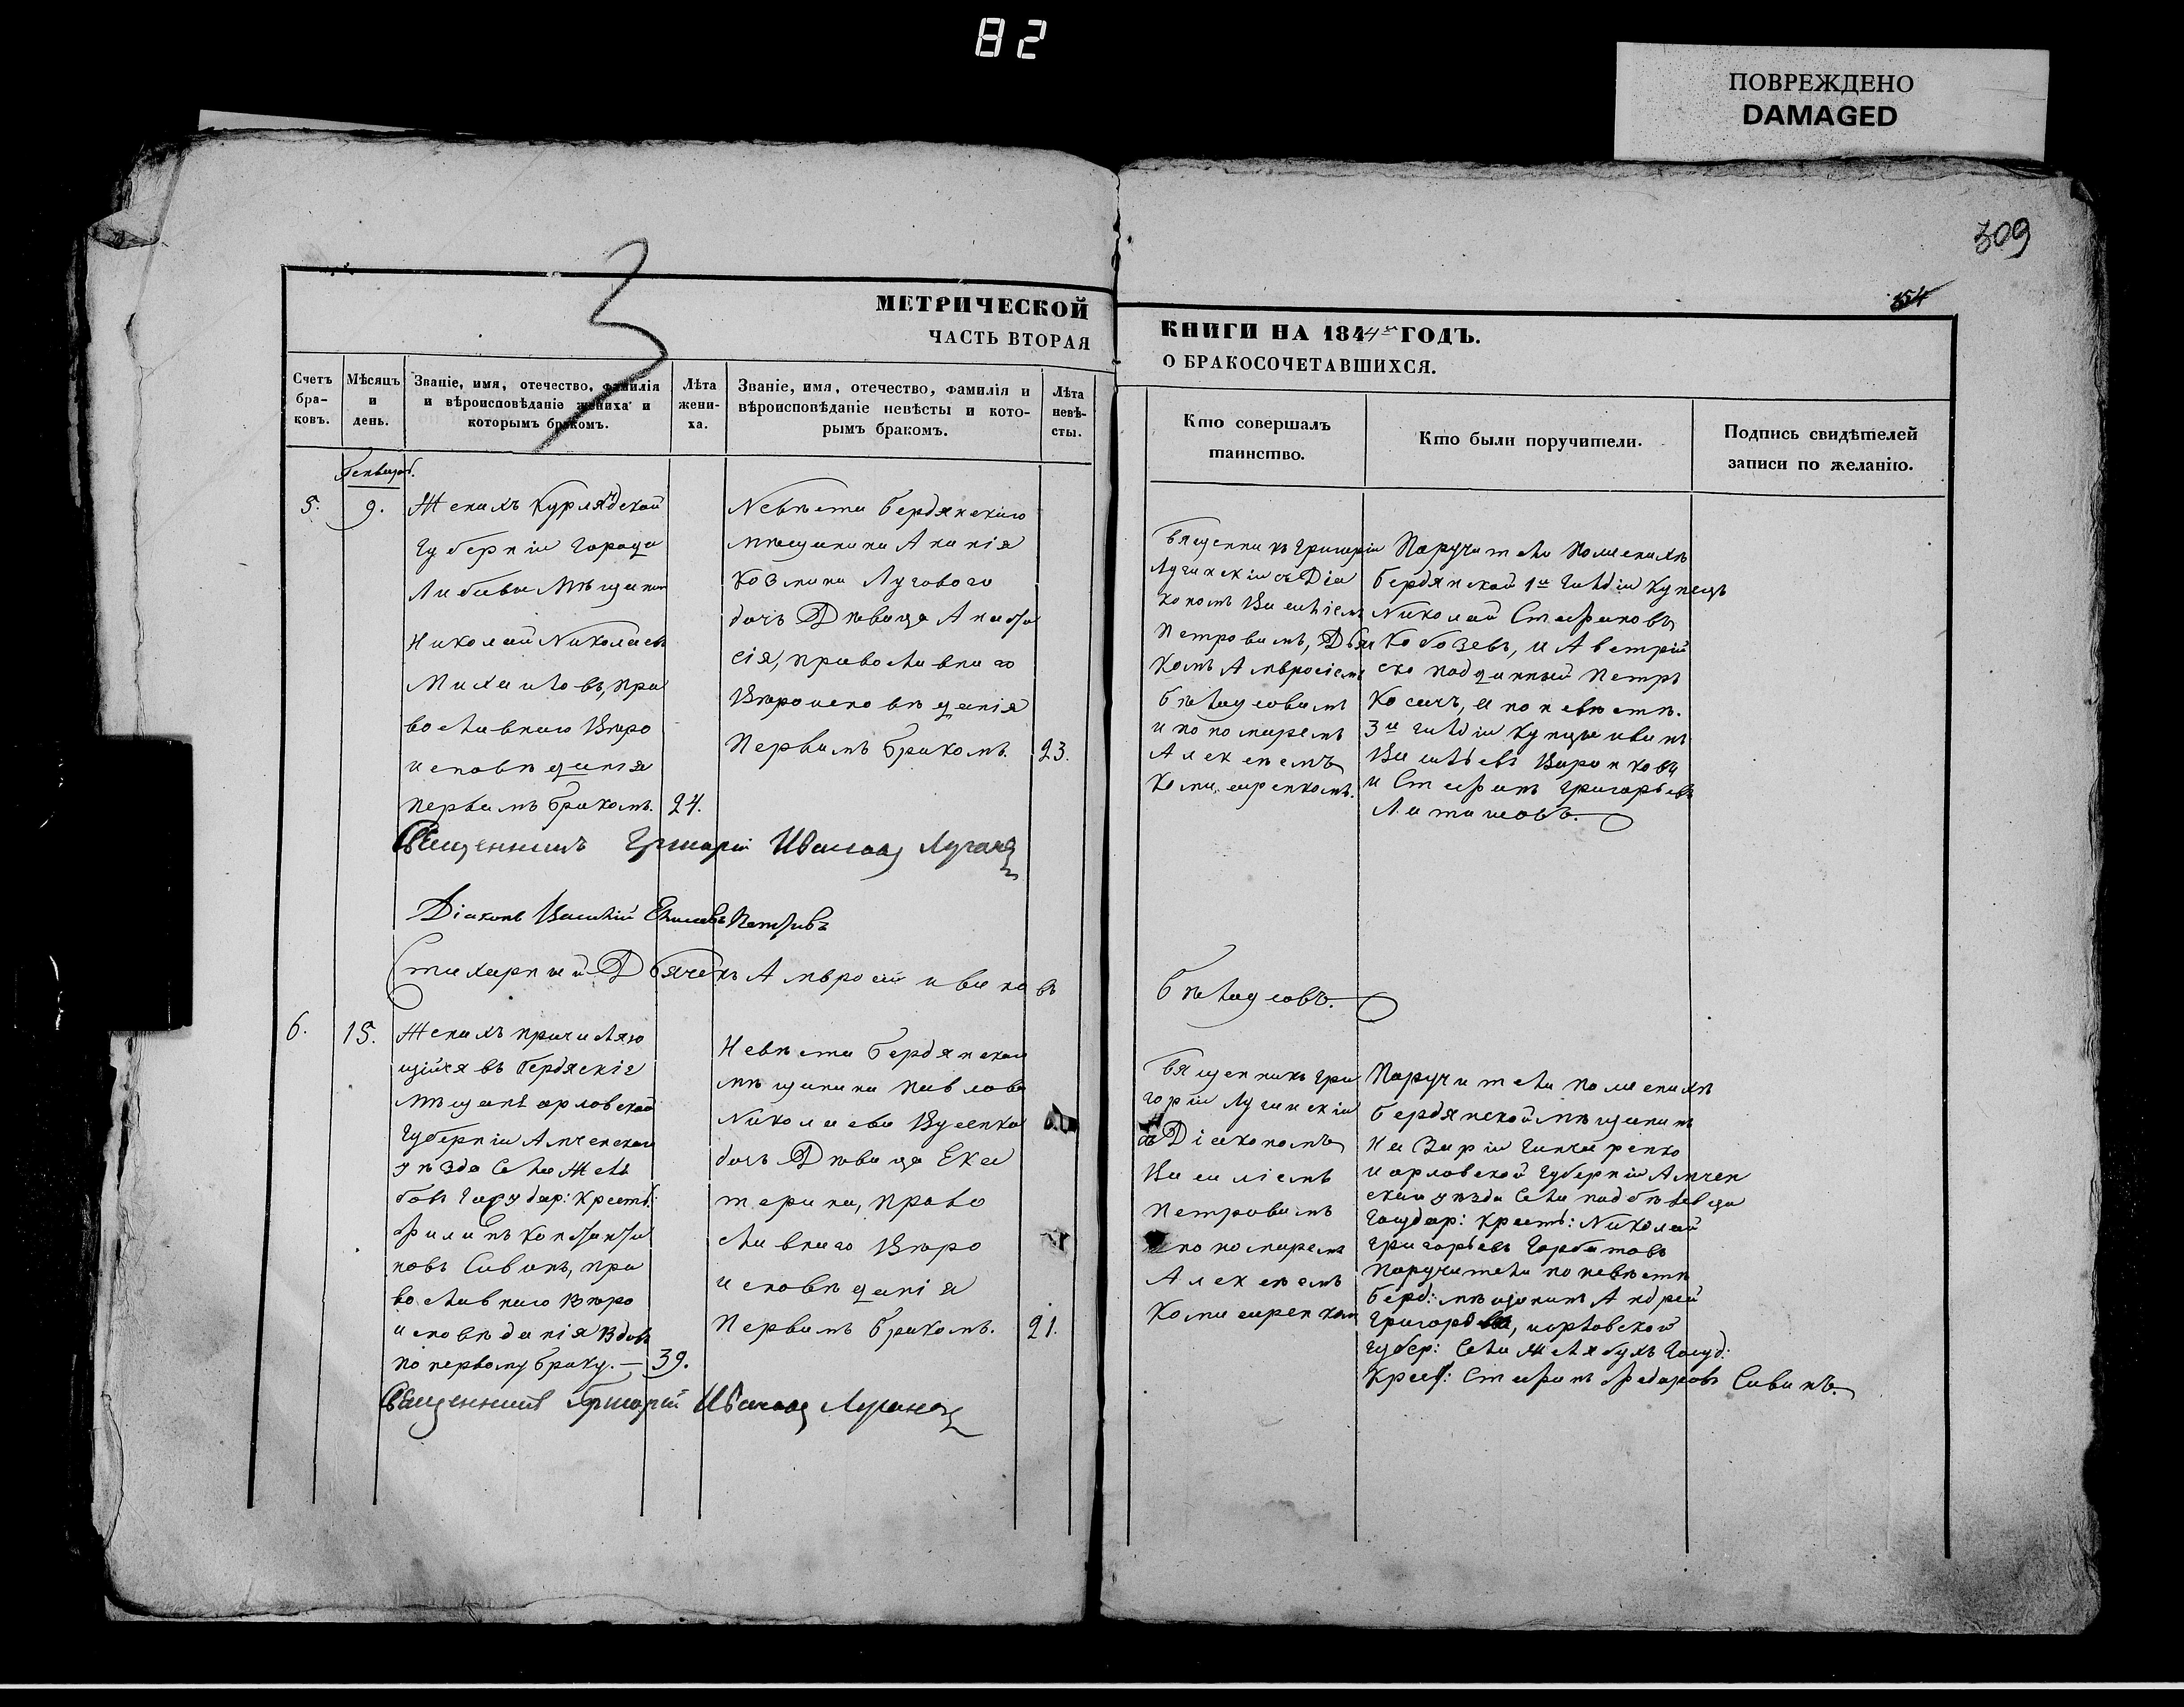 82
ПОВРЕЖДЕНО
DAMAGED
309
154
МЕТРИЧЕСКОЙ
ЧАСТЬ ВТОРАЯ
КНИГИ НА 1844 ГОДЪ.
О БРАКОСОЧЕТАВШИХСЯ.
Счетъ
бра-
ковъ.
Мѣсяцъ
и
день.
Званіе, имя, отечество, фамилія
и вѣроисповѣданіе жениха и
которымъ бракомъ.
Лѣта
жени-
ха.
Званіе, имя, отечество, фамилія и
вѣроисповѣданіе невѣсты и кото-
рымъ бракомъ.
Лѣта
невѣ-
сты.
Кто совершалъ
таинство.
Кто были поручители.
Подпись свидѣтелей
записи по желанію.
5.
9.
Женихъ Курлядской
Губерніи Города
Либавы Мѣщанин
Николай Николаевъ
Михаиловъ, пра
вославнаго Вѣро
исповѣданія
первымъ бракомъ.
24.
Невѣста Бердянскаго
мѣщанина Ананія
Козмина Луговаго
дочь Дѣвица Анаста
сія, православнаго
Вѣроисповѣданія
Первымъ бракомъ.
23.
Священникъ Григорій
Лучинскій съ Діа
кономъ Василіемъ
Петровымъ, Дьяч
комъ Амвросіемъ
и пономаремъ
Алексѣемъ
Поручители по женихѣ
Бердянской 1й Гильдіи Купецъ
Николай Стефановъ
Кобозевъ, и Австрій
ско подданный Петръ
Косичъ, а по невѣстѣ.
3й гильдіи
и Стефанъ Григорьевъ
Священникъ Григорій
Діаконъ Василій Петровъ
Стихарный Дьячекъ Амвросій Ивановъ
6.
15.
Женихъ причисляю
щійся въ Бердяскіе
мѣщане орловской
Губерніи Амченскаго
уѣзда Села Желя
бовъ Государ: Крестьян:
Филипъ Константи
новъ Сивинъ, пра
вославнаго Вѣро
исповѣданія Вдовъ
по первому браку. —
39.
Невѣста Бердянскаго
мѣщанина Павлова
Николаева
дочь Дѣвица Ека
терина, Право
славнаго Вѣро
исповѣданія
Первымъ бракомъ.
21.
Священникъ Гри
горій Лучинскій
съ Діакономъ
Василіемъ
Петровымъ
пономаремъ
Алексѣемъ
Поручители по женихѣ
Бердянской мѣщанинъ
и орловской Губерніи Амчен
скаго уѣзда Села
Государ: Крест: Николай
Григорьевъ Горбатовъ
Поручители по невѣстѣ
Берд: мѣщанинъ Андрей
Губер: Села Желябухъ Госуд:
Крест: Стефанъ Федоровъ Сивинъ.
Священникъ Григорій